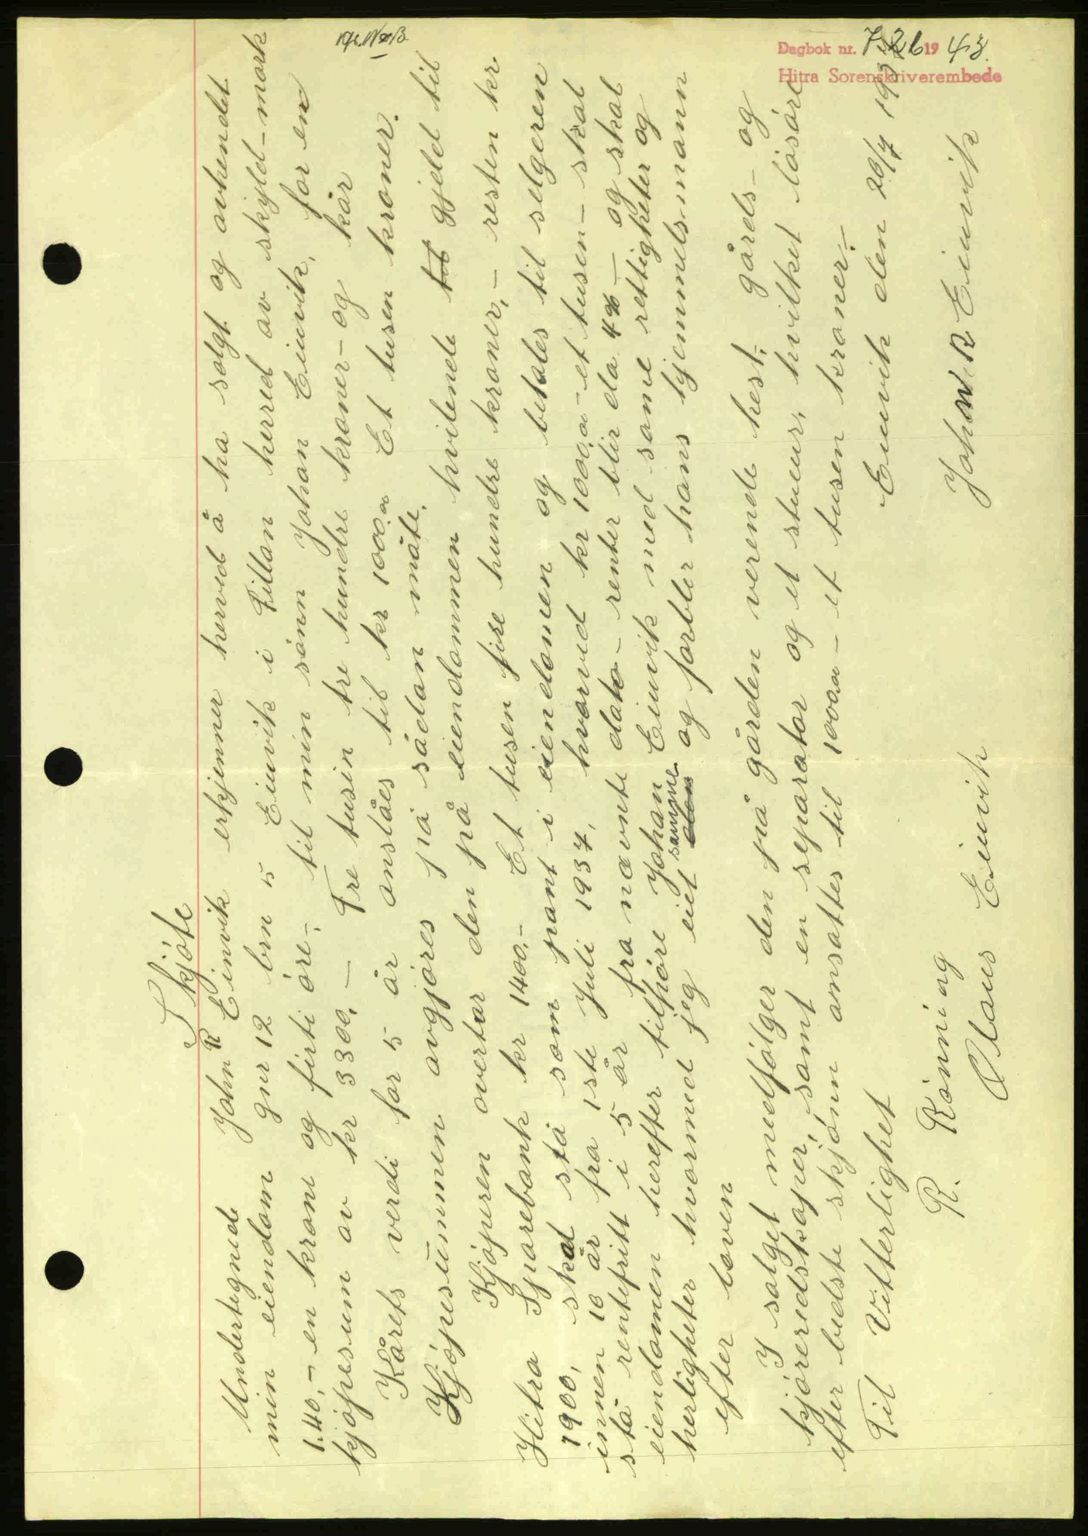 Dagbok nr. 726 1943.
Hitra Sorenskriverembede
Skjöte
Undertegnede John R Einvik erkjenner herved å ha solgt og avhendet
min eiendom gnr 12 brn 5 Einvik i Fillan herred av skyld-mark
1.40,- en krone og firti öre,- til min sönn Johan Einvik, for en
kjöpesum av kr 3300,- Tre tusin tre hundre kroner- og kår
Kårets verdi for 5 år anslåes til kr 1000,00 Et tusen kroner.
Kjöpesummen avgjöres på sådan måte.
Kjöperen overtar den på eiendommen hvilende til gjeld til
Hitra Sparebank kr 1400,- Et tusen fire hundre kroner,- resten kr
1900, skal stå som pant i eiendomen og betales til selgeren
innen 10 år fra 1ste Juli 1937, hvorved kr 1000,00- et tusen- skal
stå rentefritt i 5 år fra nævnte dato- renter blir da 4% - og skal
eiendomen herefter tilhöre Johan Einvik med samme rettigheter og
herligheter hvormed jeg eiet samme den og forblir hans hjemmelsmann
efter loven
I salget medfölger den på gården verende hest, gårds- og
kjöreredskaper, samt en separator og et stueur, hvilket lösöre
efter bedste skjönn ansattes til 1000,00- et tusen kroner.-
Einvik den 20/7 193
Til Vitterlighet
John R Einvik
R. Rönning
Olaus Einvik